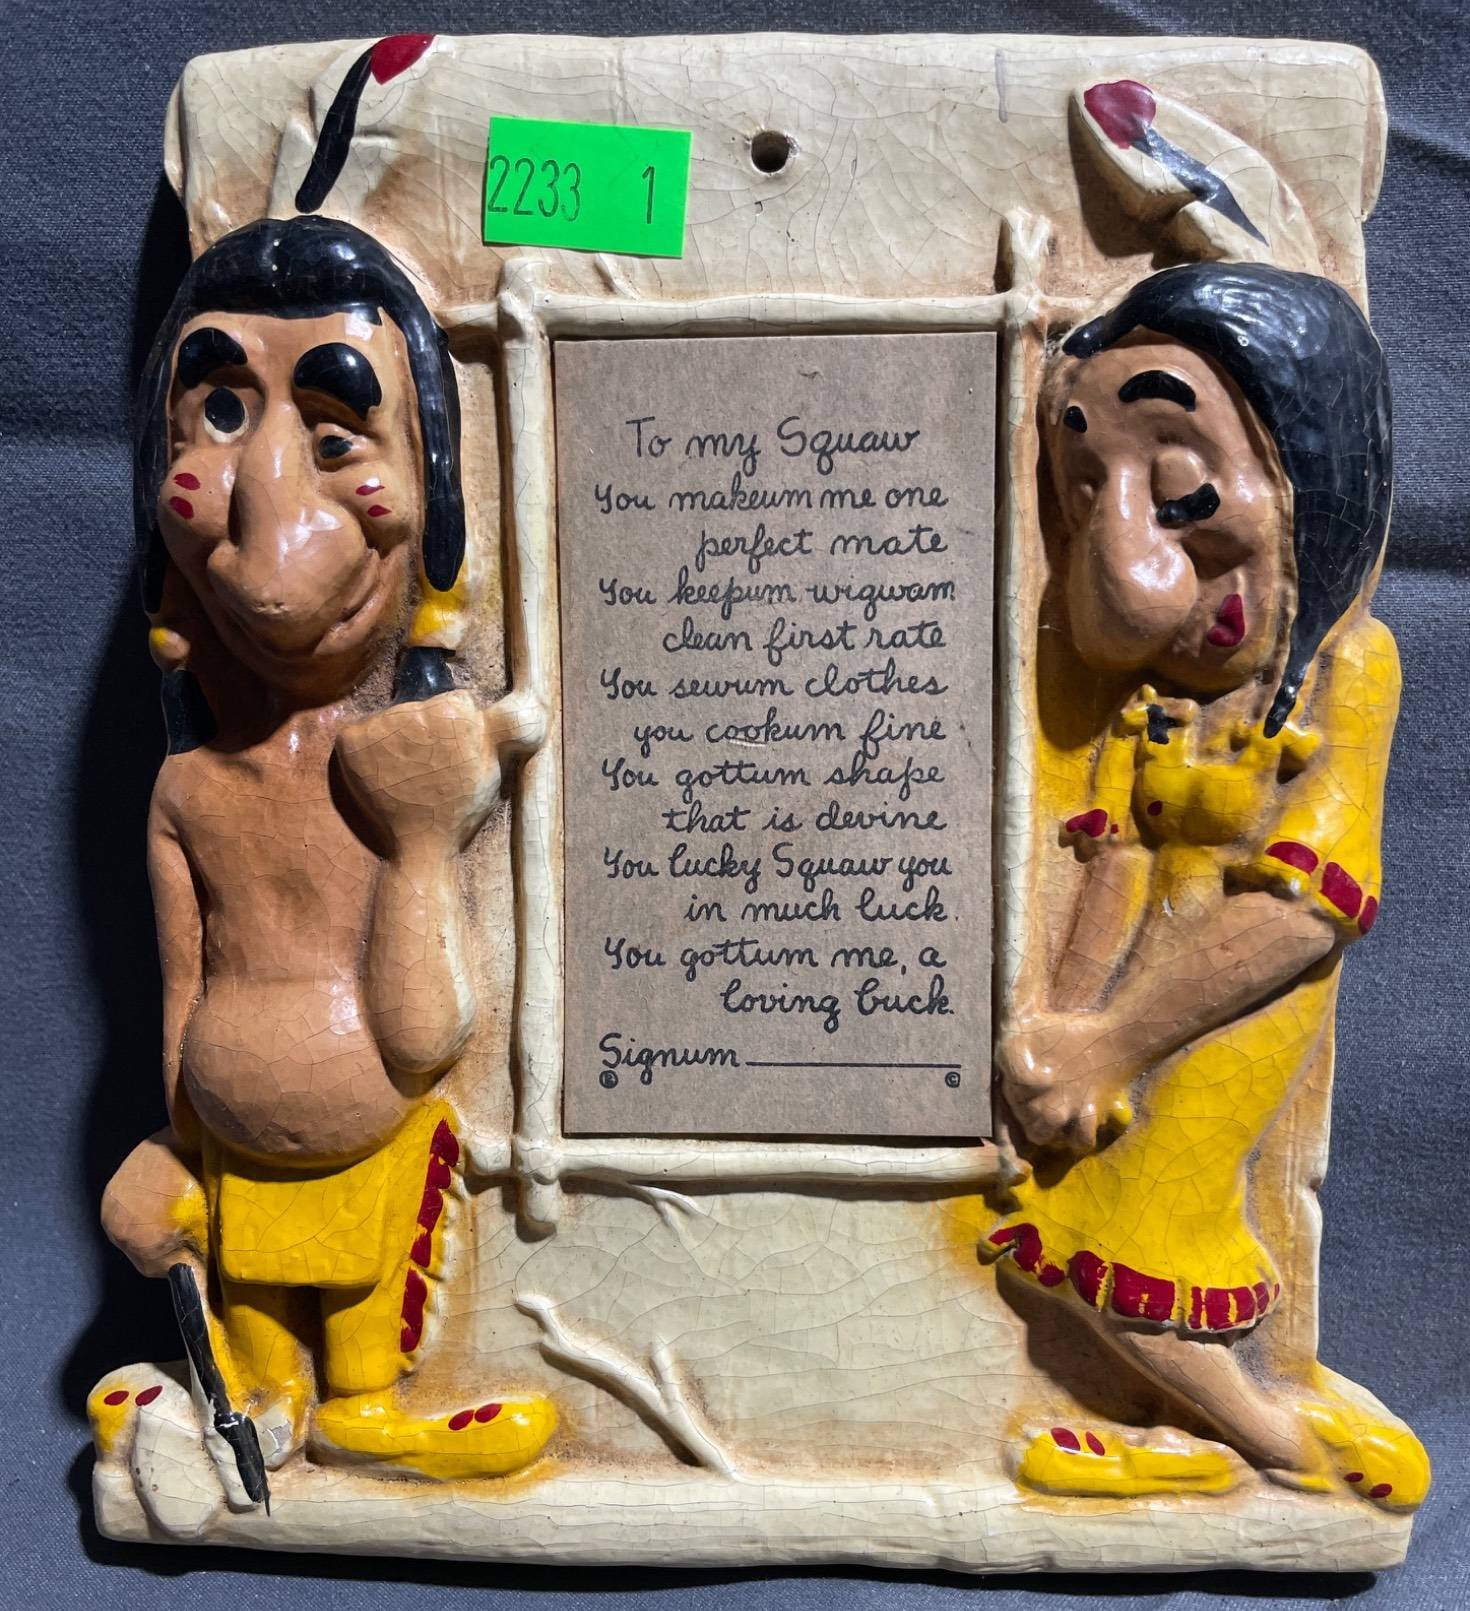 2233 1
To my Squaw
You makeum me one
perfect mate
You keepum wigwam
clean first rate
You sewum clothes
you cookum fine
You gottum shape
that is devine
You lucky Squaw you
in much luck.
You gottum me, a
loving buck.
Signum
® ©